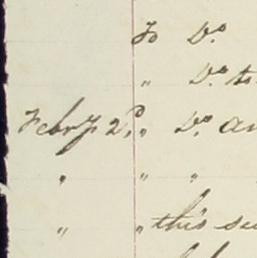 To Do
" Do to
Febry 2d " Do an
" " "
" " this su